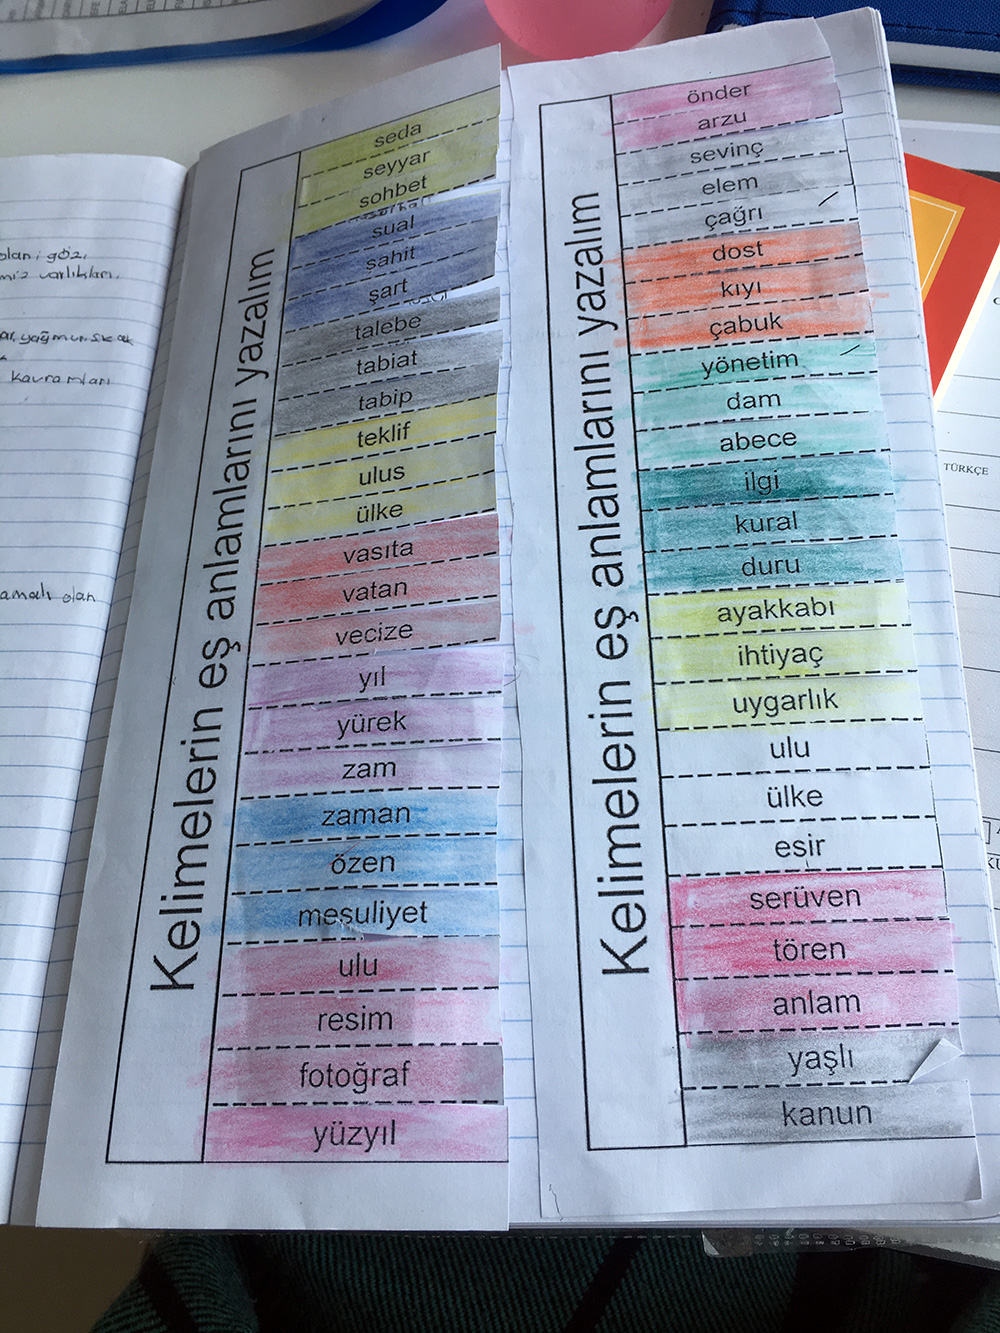 olan; göz,
miz varlıkları.
ar, yağmur, sıcak
kavramları
amalı olan
Kelimelerin eş anlamlarını yazalım
seda
seyyar
sohbet
sual
şahit
şart
talebe
tabiat
tabip
teklif
ulus
ülke
vasıta
vatan
vecize
yıl
yürek
zam
zaman
özen
mesuliyet
ulu
resim
fotoğraf
yüzyıl
Kelimelerin eş anlamlarını yazalım
önder
arzu
sevinç
elem
çağrı
dost
kıyı
çabuk
yönetim
dam
abece
ilgi
kural
duru
ayakkabı
ihtiyaç
uygarlık
ulu
ülke
esir
serüven
tören
anlam
yaşlı
kanun
TÜRKÇE